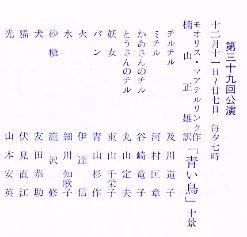 第三十九回公演
十二月十一日ヨリ廿七日 毎夕七時
モオリス・マアテルリンク作
楠山正雄訳
「青い鳥」十景
チルチル 及川道子
ミチル 河村匡章
かあさんのチル 谷崎竜子
とうさんのチル 丸山定夫
妖女 東山千栄子
パン 青山杉作
火 伊達信
水 細川知歌子
砂糖 滝沢修
犬 友田恭助
猫 伏見直江
光 山本安英